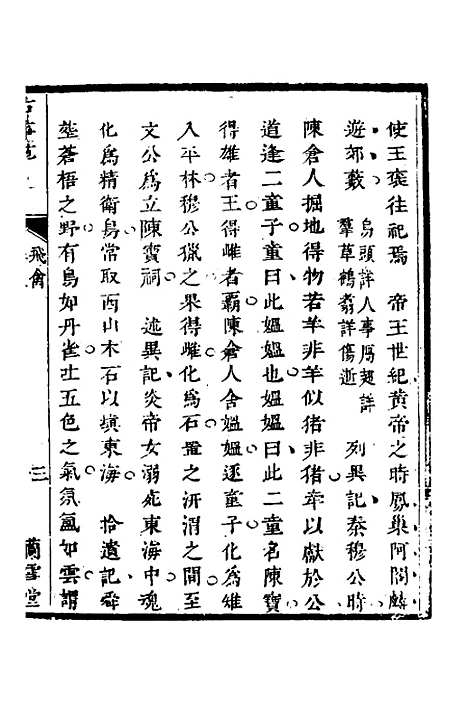 使王褒往祀焉　帝王世紀黃帝之時鳳巢阿閣麟
遊郊藪
烏頭詳人事馮超詳
羣草鶴翦詳傷逝
列異記秦穆公時
陳倉人掘地得物若羊非羊似猪非猪牽以獻於公
道逢二童子童曰此媼媼也媼媼曰此二童名陳寶
得雄者王得雌者霸陳倉人舍媼媼逐童子化為雉
入平林穆公獵之果得雌化為石置之汧渭之間至
文公為立陳寶祠　述異記炎帝女溺死東海中魂
化為精衛鳥常取西山木石以填東海　拾遺記舜
塟蒼梧之野有鳥如丹雀吐五色之氣氛氳如雲謂
飛禽
三
蘭雪堂